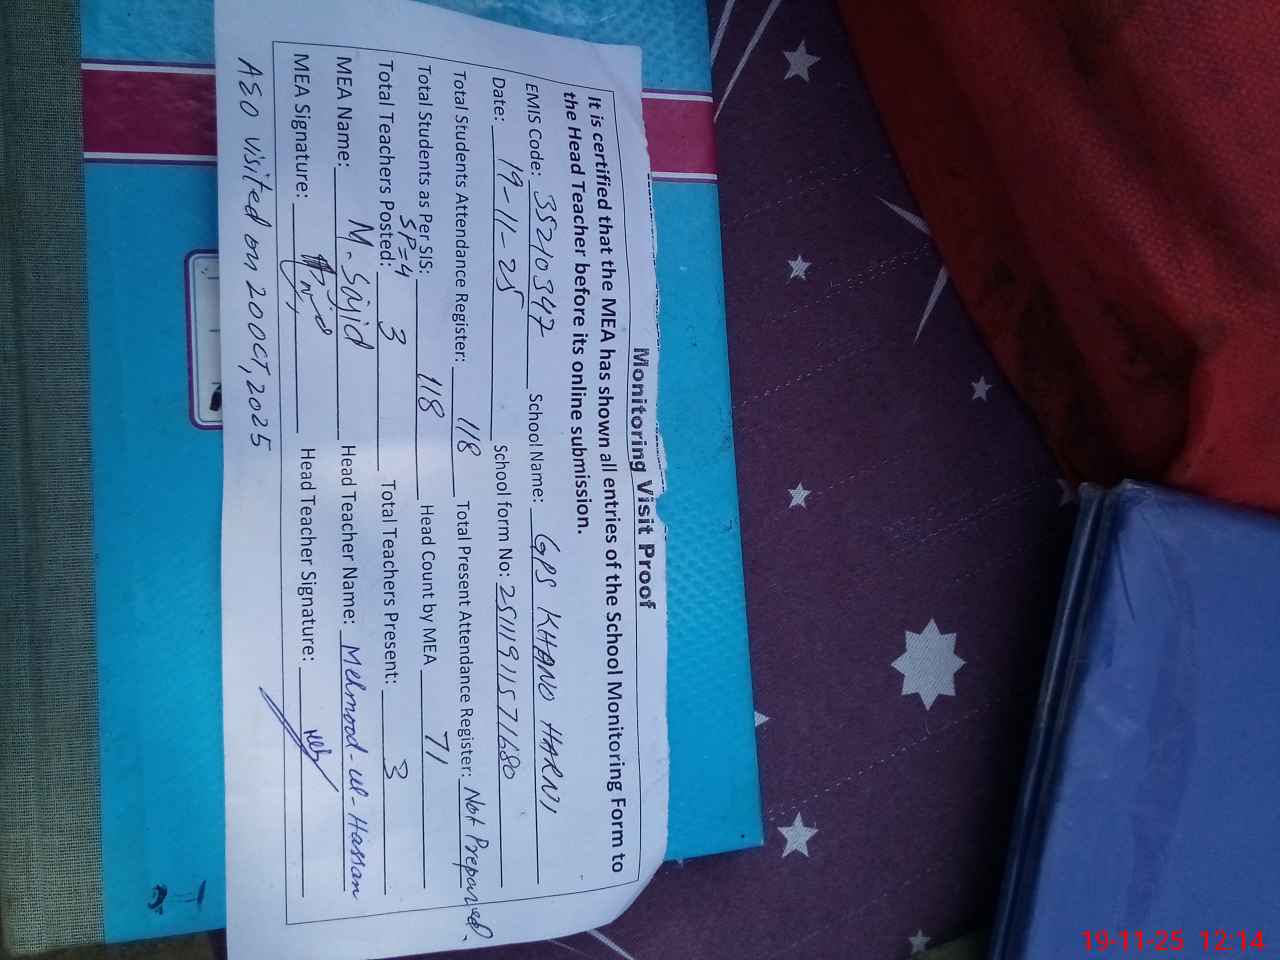 Monitoring Visit Proof
It is certified that the MEA has shown all entries of the School Monitoring Form to
the Head Teacher before its online submission.
EMIS Code: 35210347 School Name: GPS KHANO HARNI
Date: 19-11-25 School form No: 251119115 71680
Total Students Attendance Register: 118 Total Present Attendance Register: Not Prepared.
Total Students as Per SIS: 118 Head Count by MEA 71
SP=4
Total Teachers Posted: 3 Total Teachers Present: 3
MEA Name: M. Sajid Head Teacher Name: Mehmood-ul-Hassan
MEA Signature: Head Teacher Signature:
AEO visited on 20 OCT, 2025
19-11-25 12:14